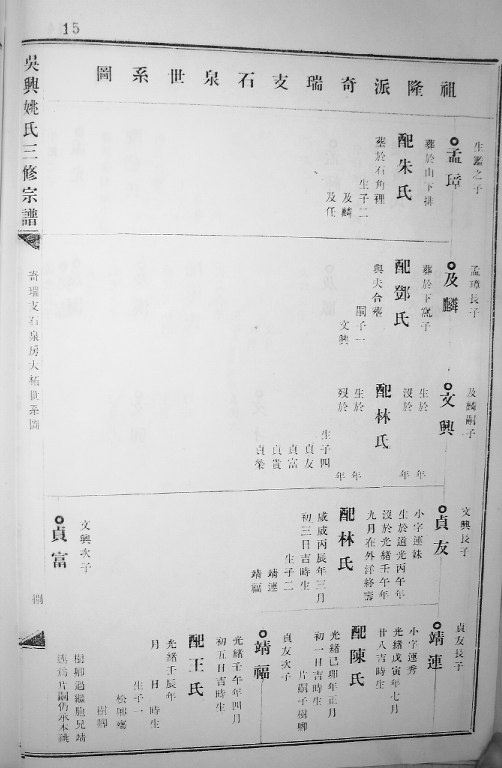 15
祖隆派奇瑞支石泉世系圖
生鑑之子
孟璋
葬於山下排
配朱氏
葬於石角裡
生子二
及麟
及任
孟璋長子
及麟
葬於下窩子
配鄧氏
與夫合葬
嗣子一
文興
及麟嗣子
文興
生於 年
歿於 年
配林氏
生於 年
歿於 年
生子四
貞友
貞富
貞貴
貞榮
文興長子
貞友
小字運妹
生於道光丙午年
沒於光緒壬午年
九月在外洋終壽
配林氏
咸咸丙辰年三月
初三日吉時生
生子二
靖連
靖福
文興次子
貞富
貞友長子
靖連
小字運秀
光緒戊寅年七月
廿八吉時生
配陳氏
光緒己卯年正月
初一日吉時生
片嗣子樹卿
貞友次子
靖福
光緒壬午年四月
初五日吉時生
配王氏
光緒壬辰年
月 日 時生
生子一
樹卿
樹卿過繼胞兄靖
連為片嗣仍承本祧
吳興姚氏三修宗譜
奇瑞支石泉房大祐世系圖
捌